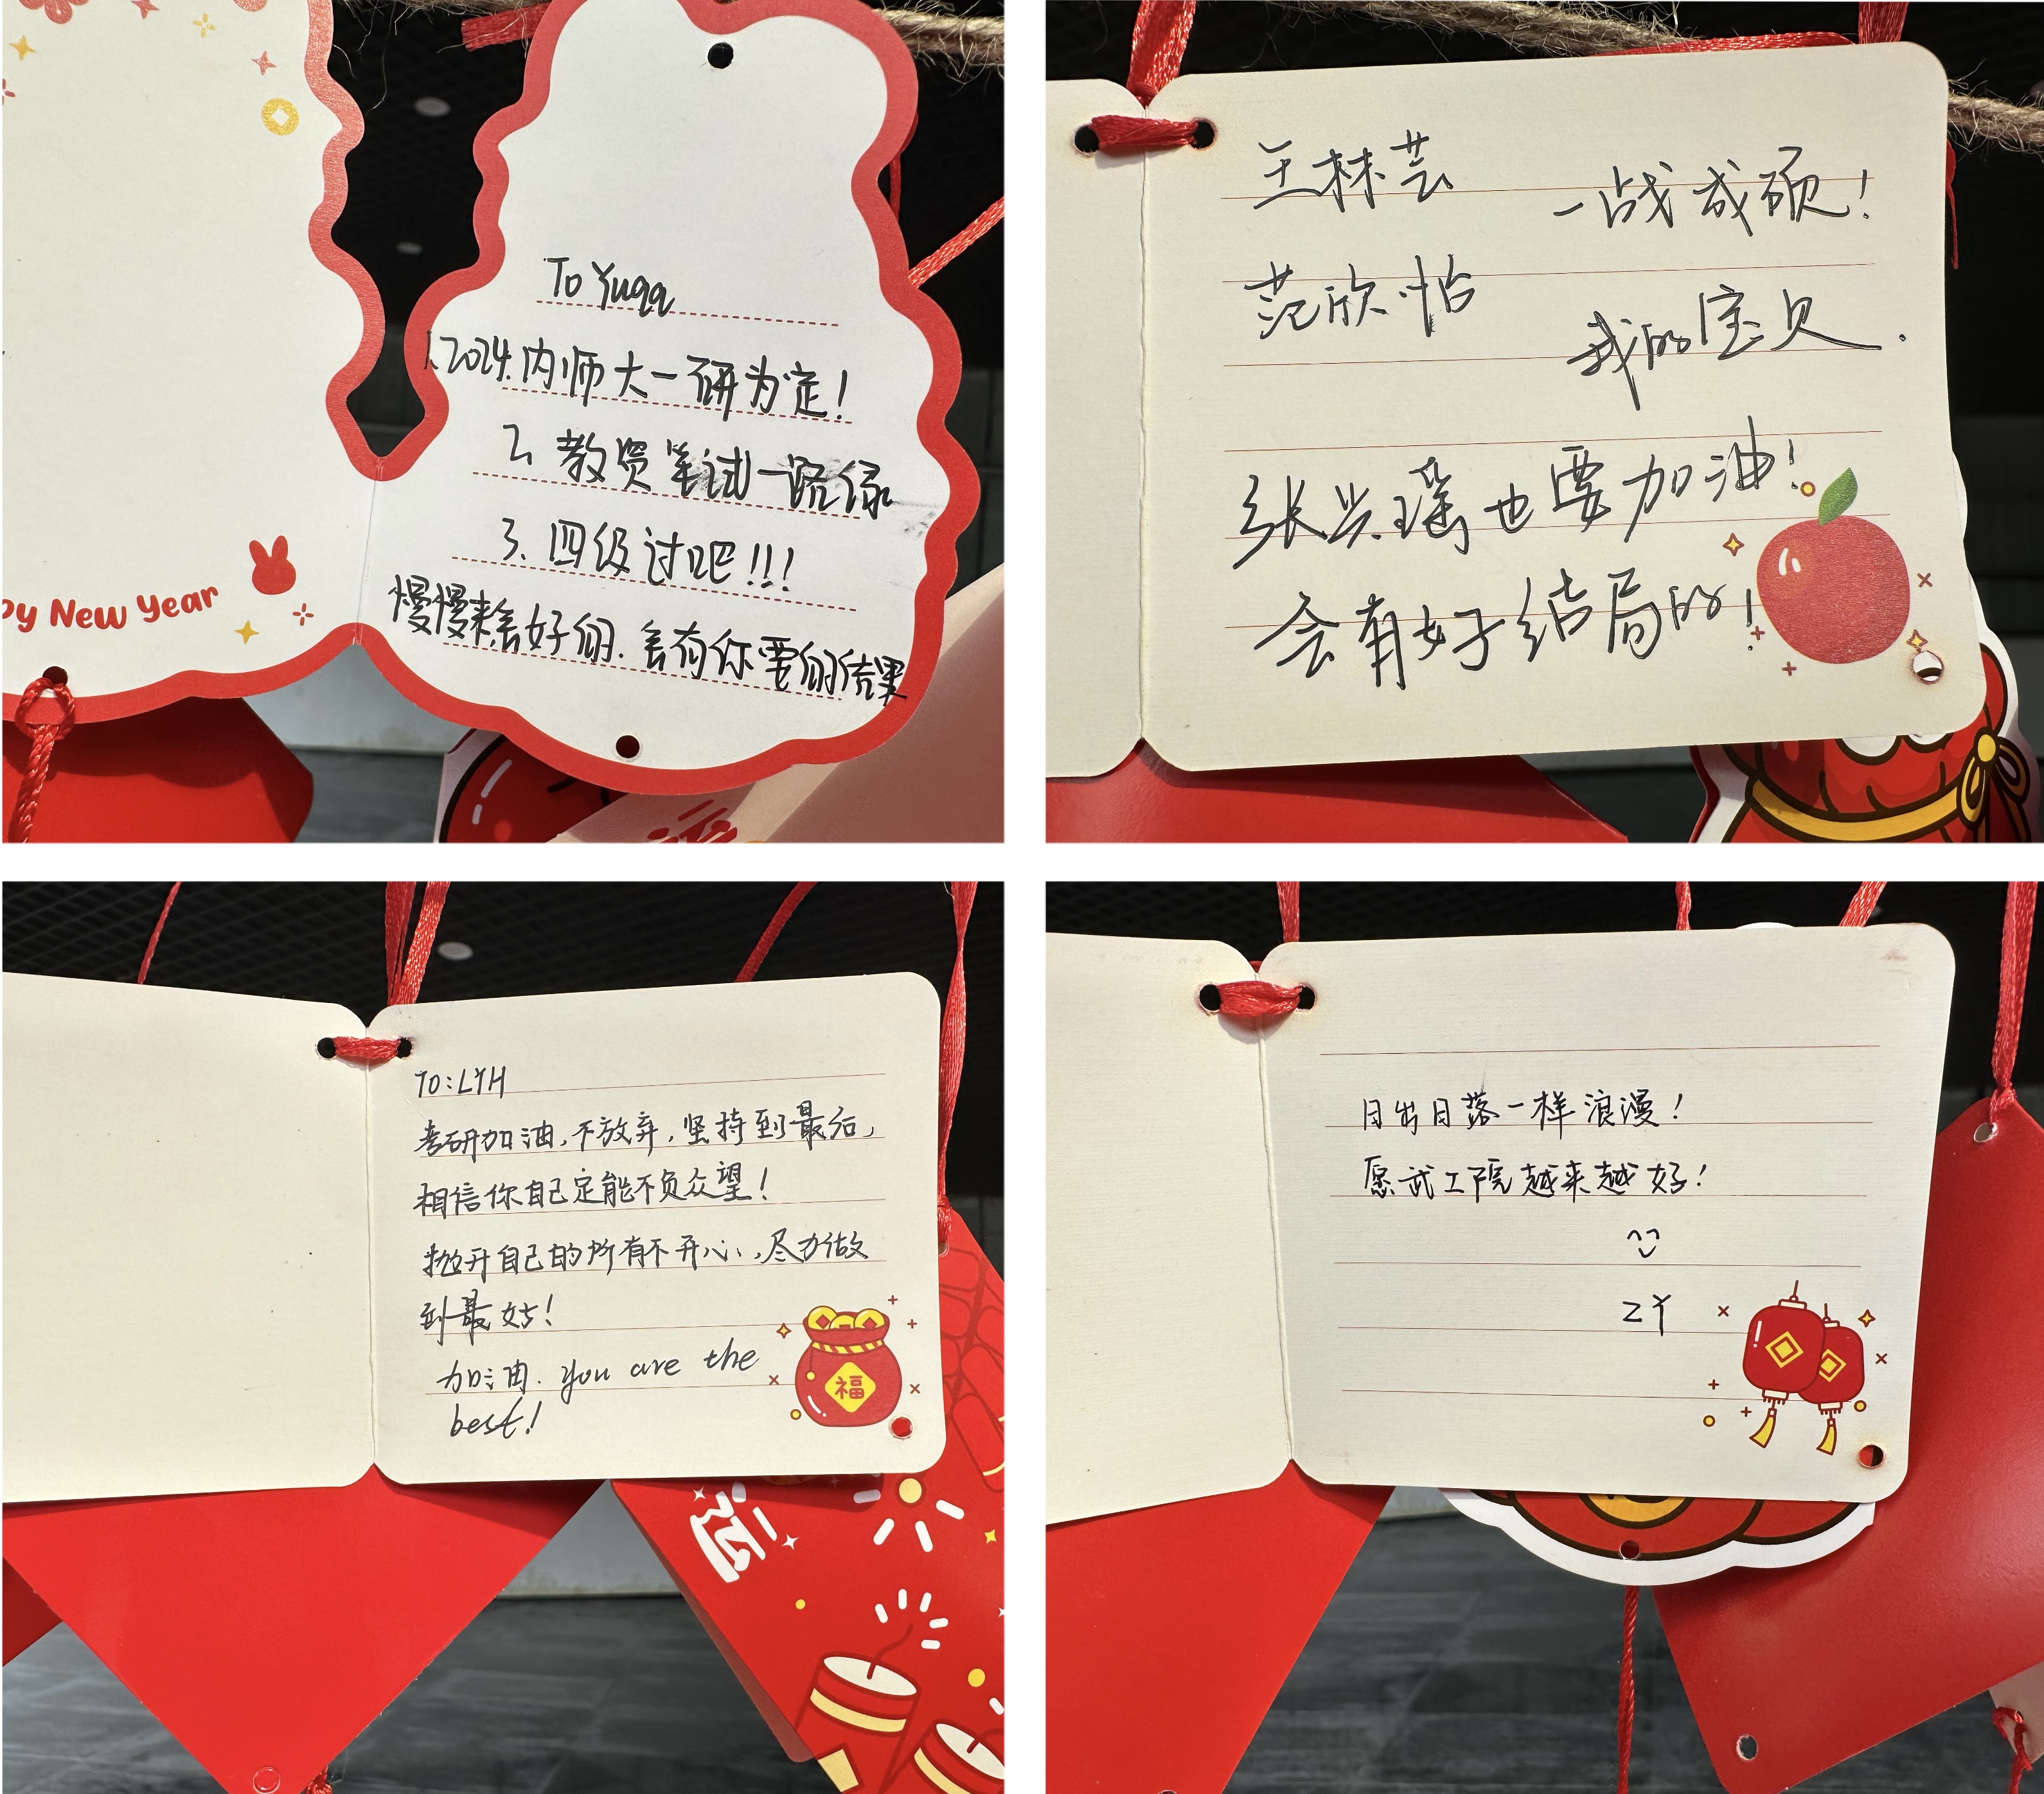 py New Year
To Yuqq
1.2024.内师大一研为定！
2、教资笔试一路绿
3、四级过吧！！！
慢慢来会好的.会有你要的结果
王林芸
一战成硕！
范欣怡
我的宝贝.
张兴瑶也要加油！
会有好结局的！
TO:LYH
考研加油,不放弃,坚持到最后,
相信你自己定能不负众望！
抛开自己的所有不开心,尽力做
到最好！
加油.you are the
best!
福
运
日出日落一样浪漫！
愿武工院越来越好！
ZY